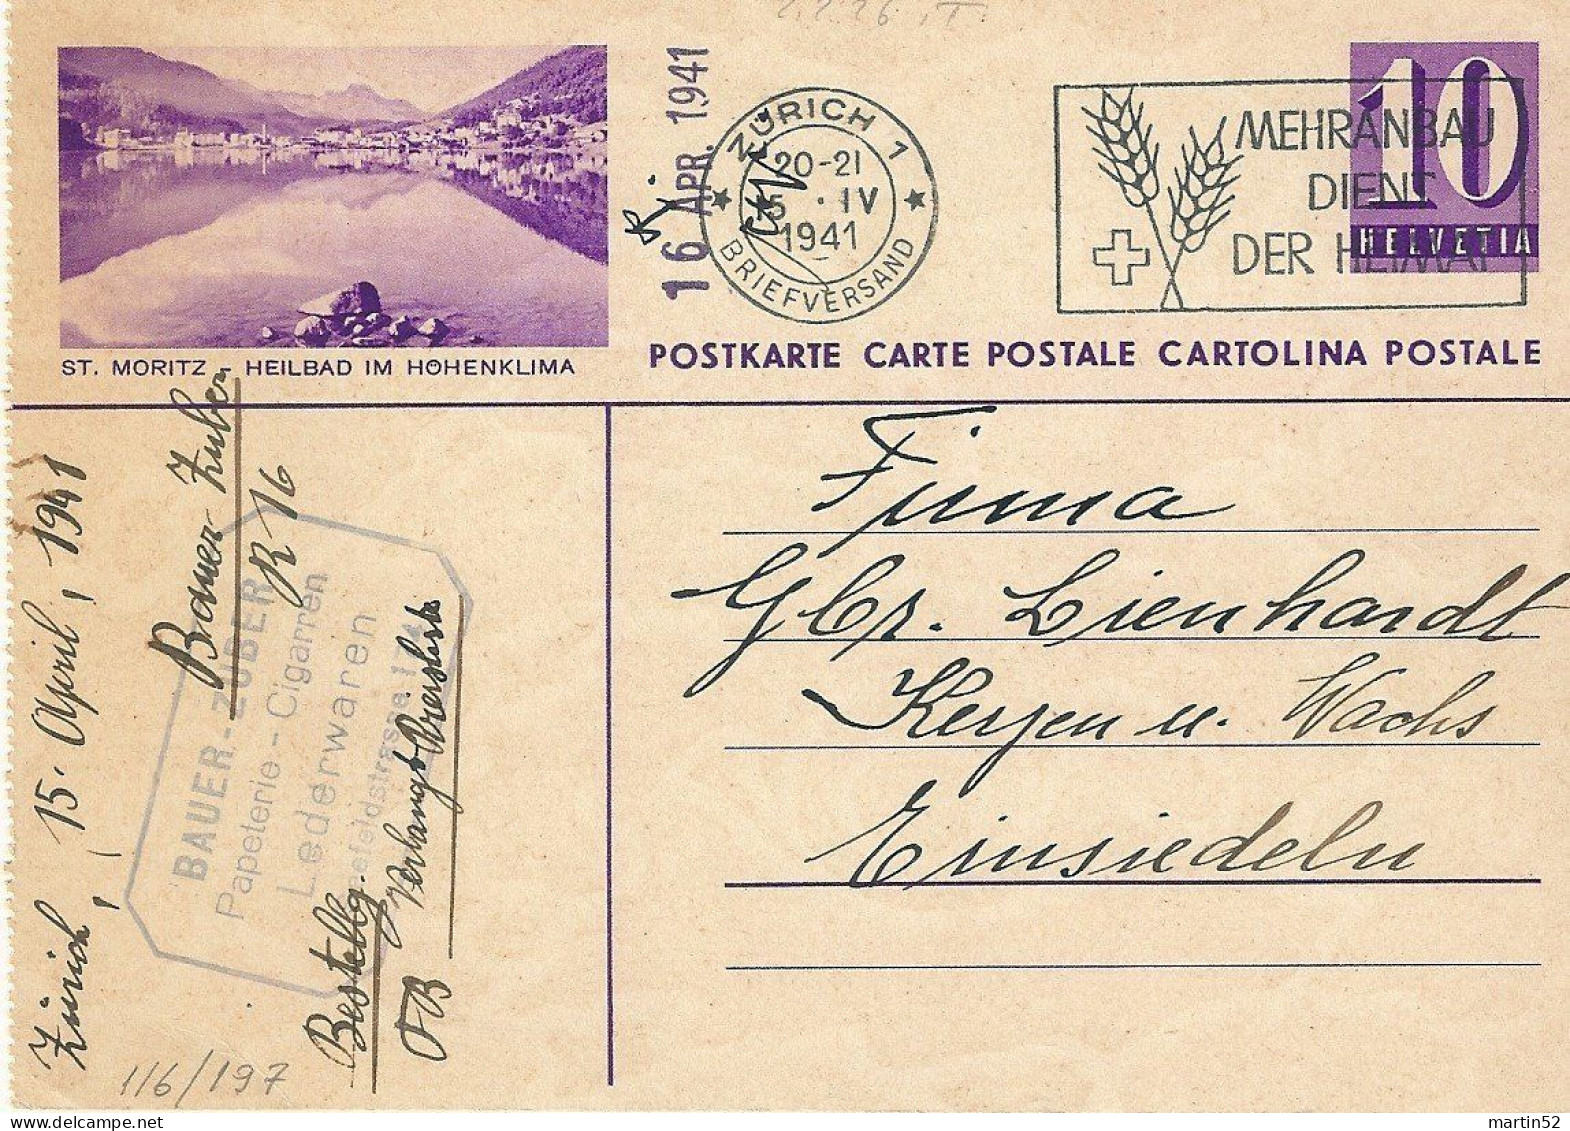 2.2.26.T.
16 APR. 1941
ZÜRICH 1
20-21
15. IV
1941
BRIEFVERSAND
MEHRANBAU
DIENT
DER HEIMAT
10
HELVETIA
ST. MORITZ - HEILBAD IM HÖHENKLIMA
POSTKARTE CARTE POSTALE CARTOLINA POSTALE
Firma
Gbr. Lienhardt
Kerzen u. Wachs
Einsiedeln
Zürich, 15. April, 1941
Bauer-Zuber
R 16
BAUER-ZUBER
Papeterie - Cigarren
Lederwaren
Bestellg.
Verlangt Preisliste
OB
116/197
martin52 delcampe.net